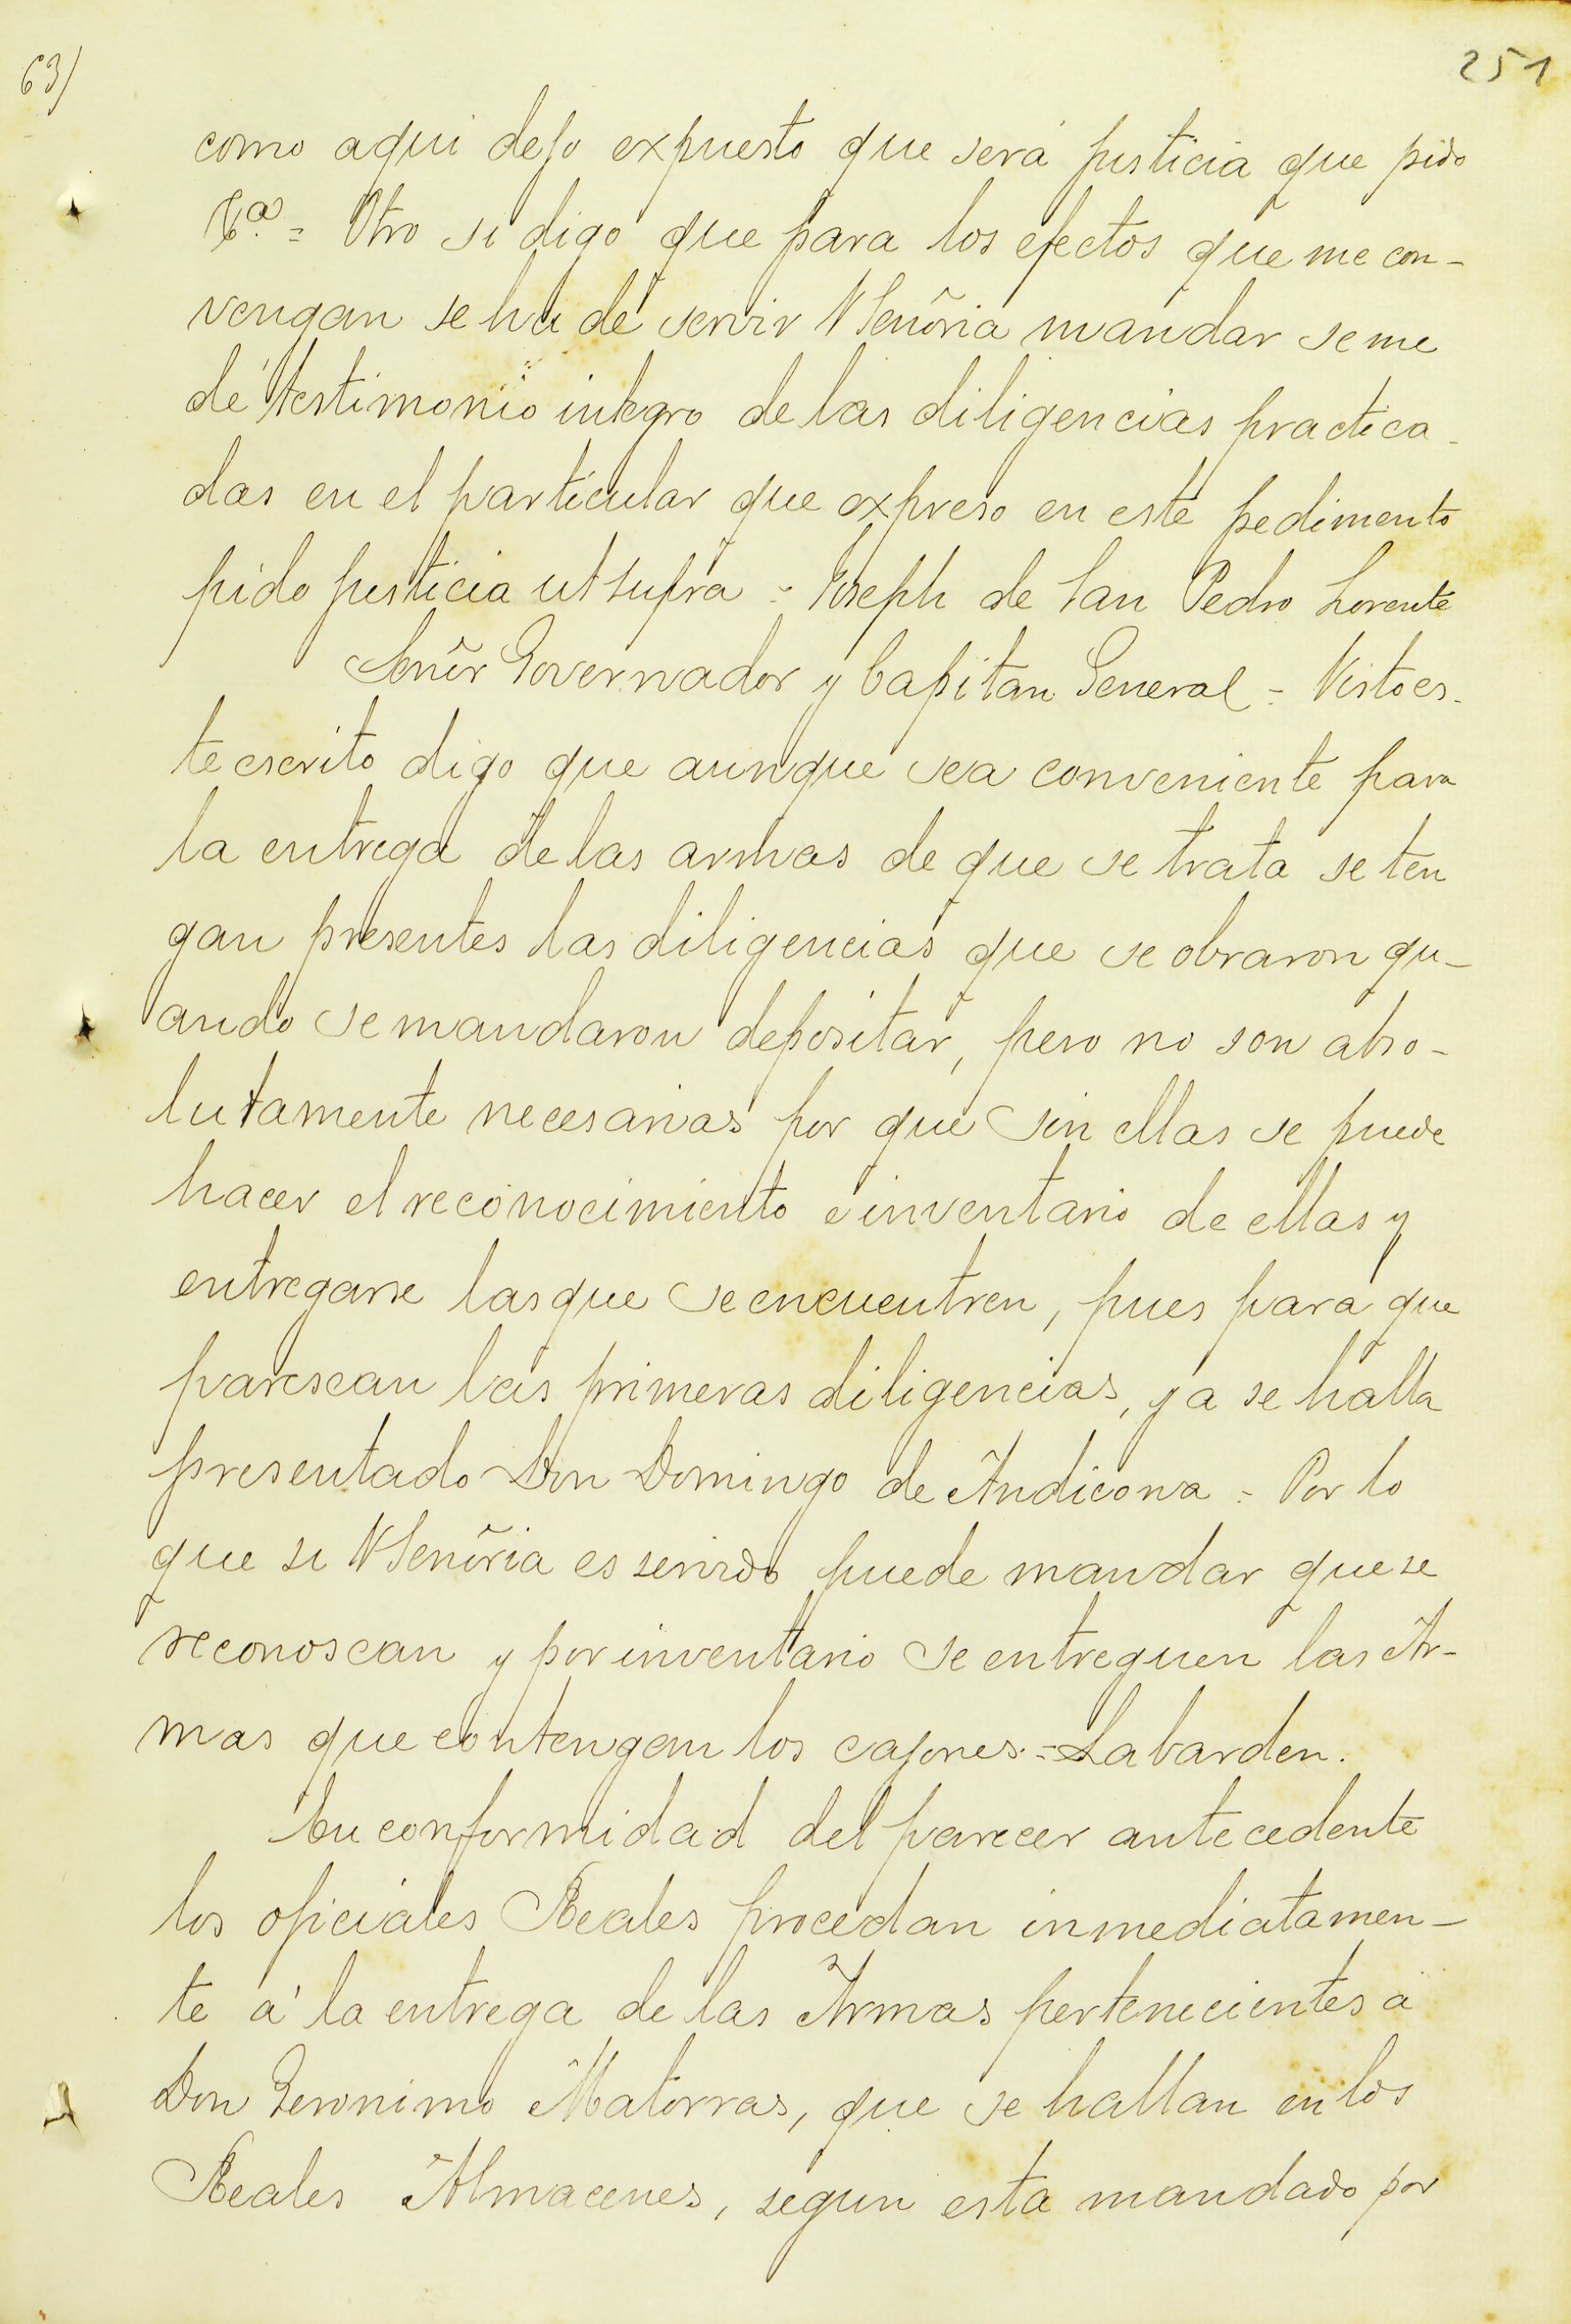 63)
251
como aqui dejo expuesto que será justicia que pido
&ª = Otro si digo que para los efectos que me con-
vengan se ha de servir VSeñoria mandar se me
dé testimonio integro de las diligencias practica-
das en el particular que expreso en este pedimento
pido justicia ut supra = Joseph de San Pedro Lorente
Señor Governador y Capitan General = Visto es-
te escrito digo que aunque sea conveniente para
la entrega de las armas de que se trata se ten
gan presentes las diligencias que se obraron qu-
ando se mandaron depositar, pero no son abso-
lutamente necesarias por que sin ellas se puede
hacer el reconocimiento e inventario de ellas y
entregarse las que se encuentren, pues para que
parescan las primeras diligencias, ya se halla
presentado Don Domingo de Andicona = Por lo
que si VSeñoria es servido puede mandar que se
reconoscan y por inventario se entreguen las Ar-
mas que contengan los cajones = Labarden.
En conformidad del parecer antecedente
los oficiales Reales procedan inmediatamen-
te á la entrega de las Armas pertenecientes a
Don Geronimo Matorras, que se hallan en los
Reales Almacenes, segun esta mandado por